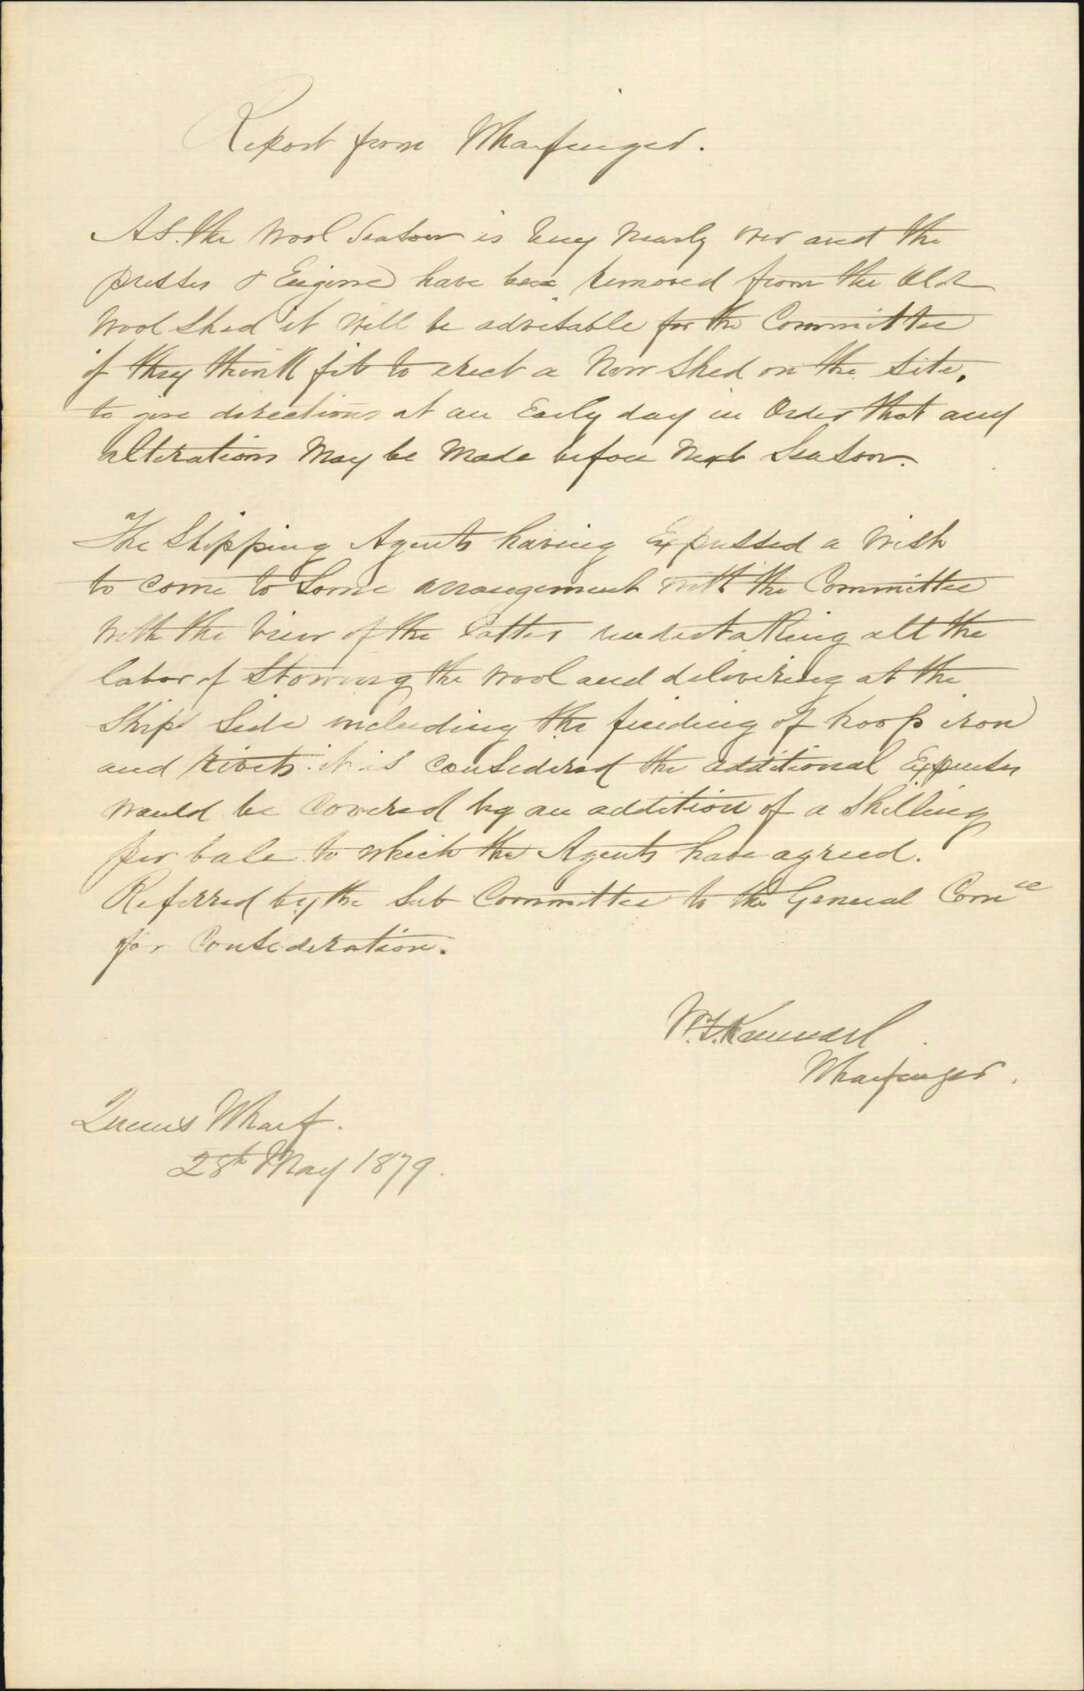 Report from Wharfinger.
As the Wool Season is Very Nearly over and the
presses & Engine have been removed from the Old
Wool Shed it Will be advisable for the Committee
if they think fit to erect a New Shed on the Site,
to give directions at an Early day in Order that any
alterations May be Made before Next Season.
The Shipping Agents having Expressed a Wish
to come to Some arrangement with the Committee
With the View of the latter undertaking all the
labor of Stowing the Wool and delivering at the
Ships Side including the finding of hoop iron
and rivets it is considered the additional Expenses
Would be Covered by an addition of a Shilling
per bale to which the Agents have agreed.
Referred by the Sub Committee to the General Comee
for Consideration.
Wharfinger.
Queens Wharf.
28th May 1879.